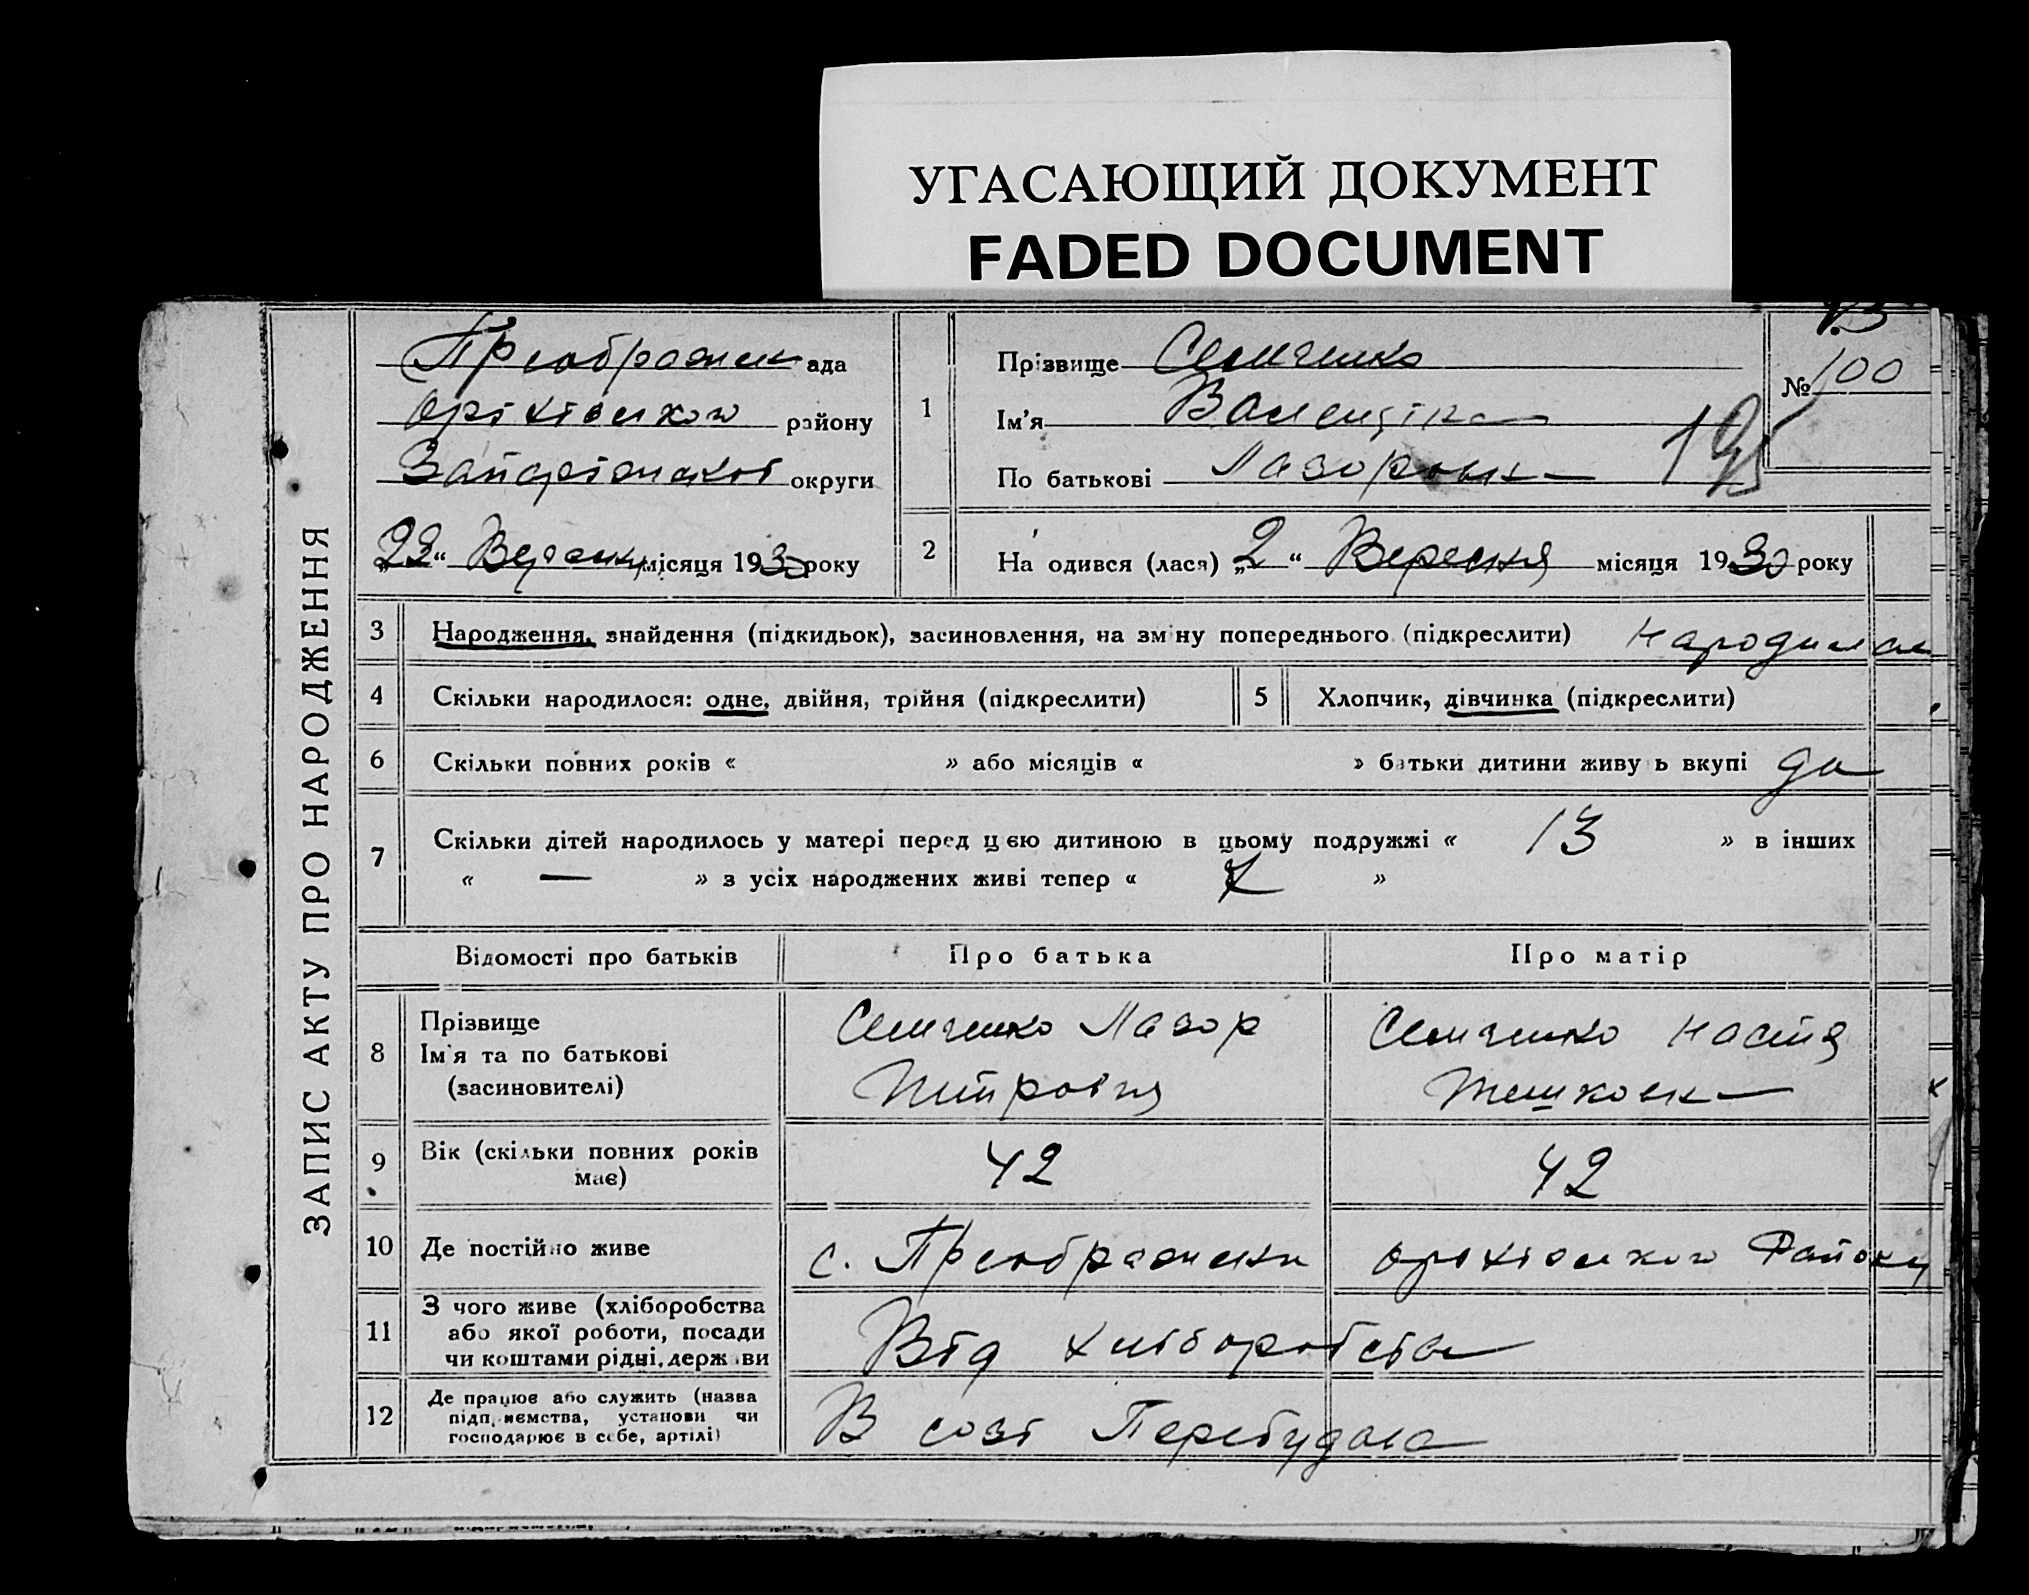 УГАСАЮЩИЙ ДОКУМЕНТ
FADED DOCUMENT
ЗАПИС АКТУ ПРО НАРОДЖЕННЯ
Преображен ада
Оріхівського району
Запоріжської округи
„22“ Вересня місяця 1930 року
1
Прізвище Семченко
Ім'я Валентіна
По батькові Лазоровна
№ 100
195
2
На одився (лася) „2“ Вересня місяця 1930 року
3 Народження, знайдення (підкидьок), засиновлення, на зміну попереднього (підкреслити)
4 Скільки народилося: одне, двійня, трійня (підкреслити)
5 Хлопчик, дівчинка (підкреслити)
6 Скільки повних років « » або місяців « » батьки дитини живу ь вкупі да
7 Скільки дітей народилось у матері перед цією дитиною в цьому подружжі « 13 » в інших
« — » з усіх народжених живі тепер « »
Відомості про батьків Про батька Про матір
8 Прізвище
Ім'я та по батькові
(засиновителі)
Семченко Лазор
Петровіч
Семченко Настя
9 Вік (скільки повних років
має)
42 42
10 Де постійно живе с. Преображенка Оріхівського Району
11 З чого живе (хліборобства
або якої роботи, посади
чи коштами рідні, держави
Від хліборобства
12 Де працює або служить (назва
підприємства, установи чи
господарює в себе, артілі)
В созі Перебудова